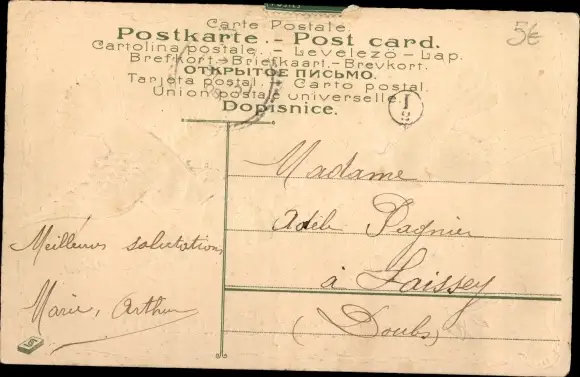 Carte Postale.
Postkarte. - Post card.
Cartolina postale. - Levelező - Lap.
Brefkort. - Briefkaart. - Brevkort.
ОТКРЫТОЕ ПИСЬМО.
Tarjeta postal. - Carto postal.
Union postale universelle.
Dopisnice.
5€
Madame
Adèle Pagnier
à Laissey
(Doubs)
Meilleures salutations
Marie, Arthur